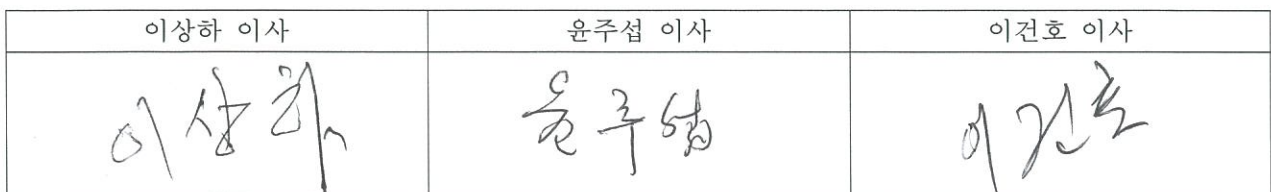 이상하 이사 윤주섭 이사 이건호 이사
이상하 윤주섭 이건호